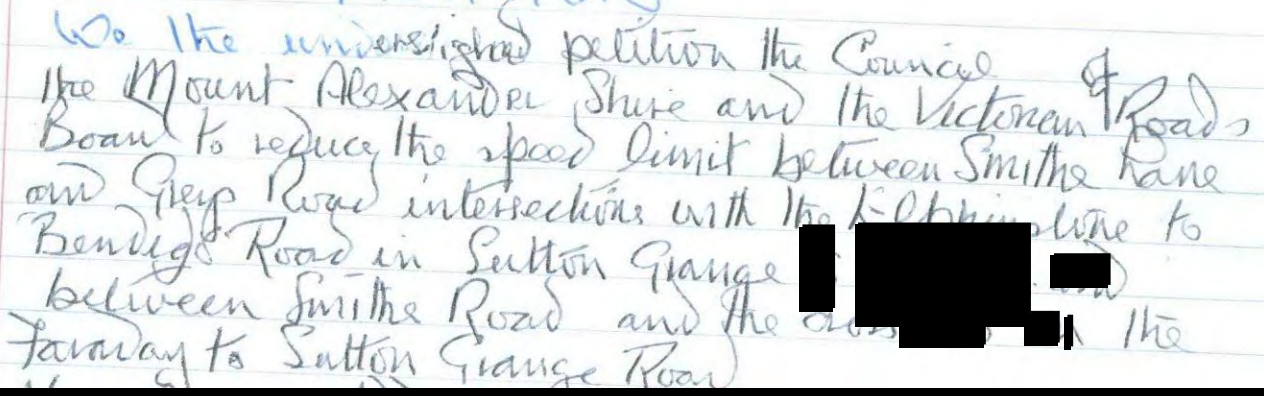 We the undersigned petition the Council of
the Mount Alexander Shire and the Victorian Roads
Board to reduce the speed limit between Smiths Lane
and Road intersections with the Elphinstone to
Bendigo Road in Sutton Grange and
between Smiths Road and the the
Faraday to Sutton Grange Road